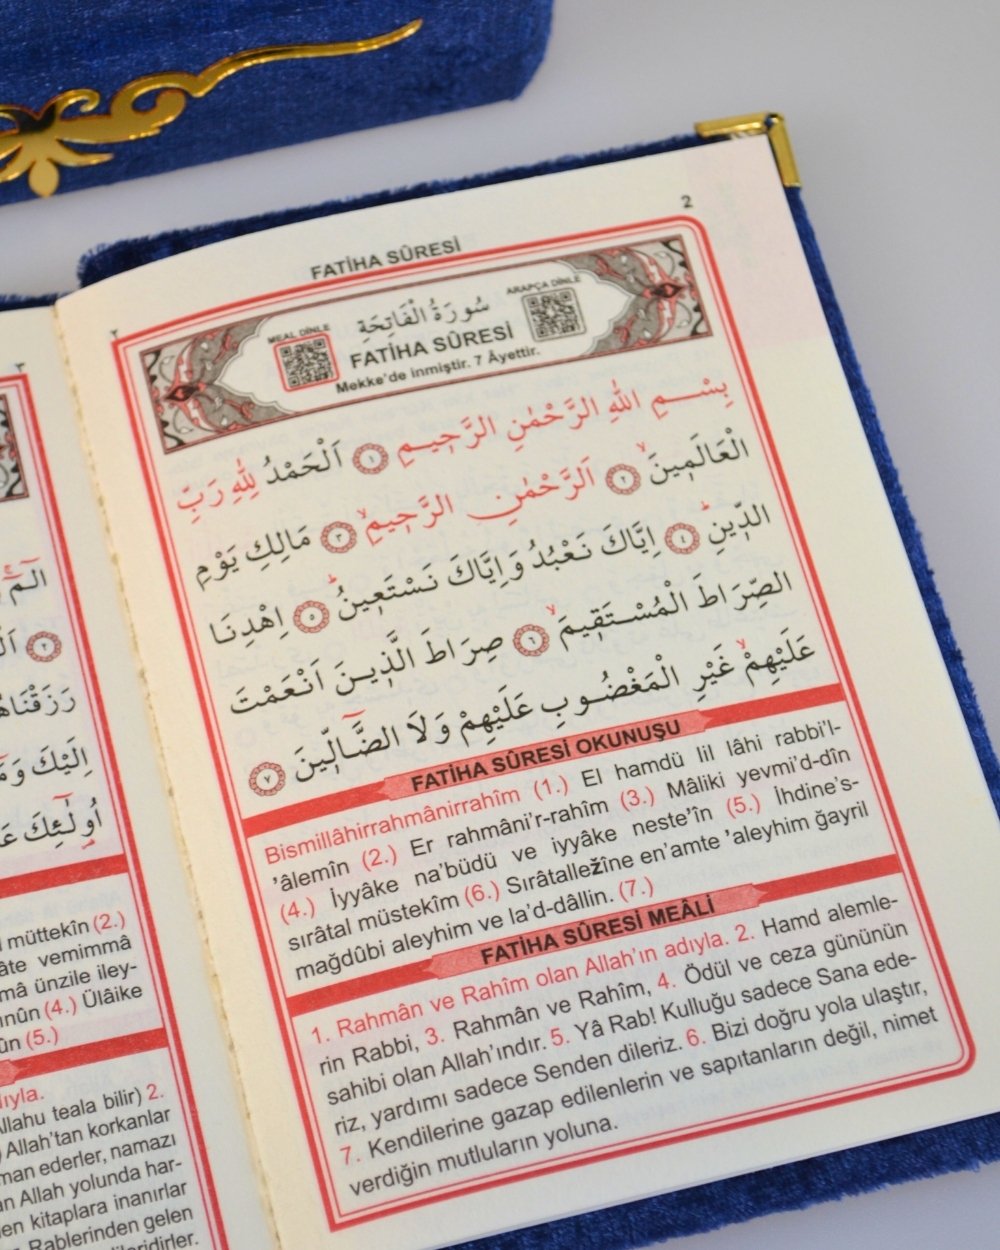 2
FATİHA SÛRESİ
٢
MEAL DİNLE
سُورَةُ الْفَاتِحَةِ
ARAPÇA DİNLE
FATİHA SÛRESİ
Mekke'de inmiştir. 7 Âyettir.
بِسْــــمِ اللّٰهِ الرَّحْمٰنِ الرَّح۪يـمِ ﴿١﴾ اَلْحَمْدُ لِلّٰهِ رَبِّ
الْعَالَم۪ينَۙ ﴿٢﴾ اَلرَّحْمٰنِ الرَّح۪يمِۙ ﴿٣﴾ مَالِكِ يَوْمِ
الدّ۪ينِۜ ﴿٤﴾ اِيَّاكَ نَعْبُدُ وَاِيَّاكَ نَسْتَع۪ينُۜ ﴿٥﴾ اِهْدِنَا
الصِّرَاطَ الْمُسْـتَق۪يمَۙ ﴿٦﴾ صِرَاطَ الَّذ۪ينَ اَنْعَمْتَ
عَلَيْهِمْۙ غَيْرِ الْمَغْضُـوبِ عَلَيْهِمْ وَلَا الضَّٓالّ۪ينَ ﴿٧﴾
FATİHA SÛRESİ OKUNUŞU
Bismillâhirrahmânirrahîm (1.) El hamdü lil lâhi rabbi'l-
'âlemîn (2.) Er rahmâni'r-rahîm (3.) Mâliki yevmi'd-dîn
(4.) İyyâke na'büdü ve iyyâke neste'în (5.) İhdine's-
sırâtal müstekîm (6.) Sırâtalležîne en'amte 'aleyhim ğayril
mağdûbi aleyhim ve la'd-dâllin. (7.)
FATİHA SÛRESİ MEÂLİ
1. Rahmân ve Rahîm olan Allah'ın adıyla. 2. Hamd alemle-
rin Rabbi, 3. Rahmân ve Rahîm, 4. Ödül ve ceza gününün
sahibi olan Allah'ındır. 5. Yâ Rab! Kulluğu sadece Sana ede-
riz, yardımı sadece Senden dileriz. 6. Bizi doğru yola ulaştır,
7. Kendilerine gazap edilenlerin ve sapıtanların değil, nimet
verdiğin mutluların yoluna.
٣
الٓمٓ
﴿٢﴾
رَزَقْنَا
اِلَيْكَ
اُو۬لٰٓئِكَ
müttekîn (2.)
vemimmâ
ünzile iley-
(4.) Ülâike
(5.)
teala bilir) 2.
Allah'tan korkanlar
ederler, namazı
Allah yolunda har-
kitaplara inanırlar
Rablerinden gelen